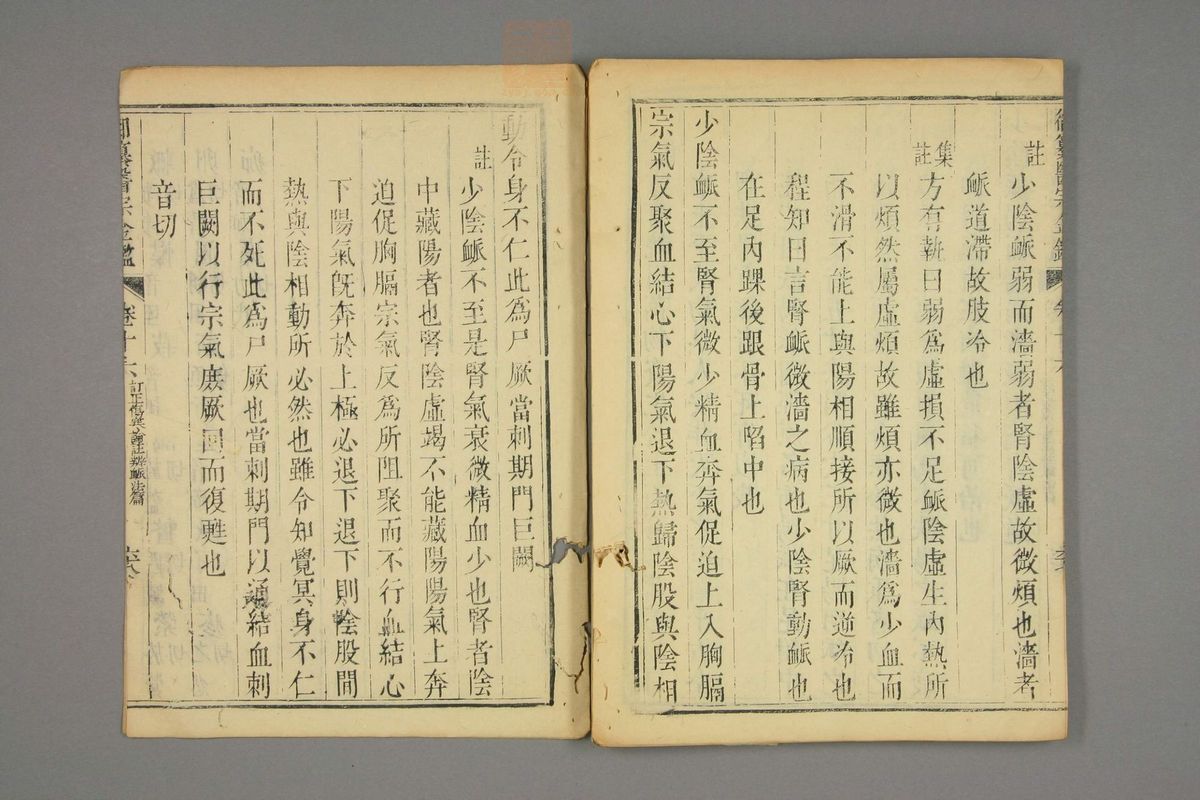 御纂醫宗金鑑
註 少陰脈弱而濇弱者腎陰虛故微煩也濇者
脈道滯故肢冷也
集註 方有執曰弱爲虛損不足脈陰虛生內熱所
以煩然屬虛煩故雖煩亦微也濇爲少血而
不滑不能上與陽相順接所以厥而逆冷也
程知曰言腎脈微濇之病也少陰腎動脈也
在足內踝後跟骨上陷中也
少陰脈不至腎氣微少精血奔氣促迫上入胸膈
宗氣反聚血結心下陽氣退下熱歸陰股與陰相
動令身不仁此爲尸厥當刺期門巨闕
註 少陰脈不至是腎氣衰微精血少也腎者陰
中藏陽者也腎陰虛竭不能藏陽陽氣上奔
迫促胸膈宗氣反爲所阻聚而不行血結心
下陽氣旣奔於上極必退下退下則陰股間
熱與陰相動所必然也雖令知覺冥身不仁
而不死此爲尸厥也當刺期門以通結血刺
巨闕以行宗氣庶厥回而復甦也
音切
御纂醫宗金鑑 卷十六 訂正傷寒論註辨脈法篇 六六